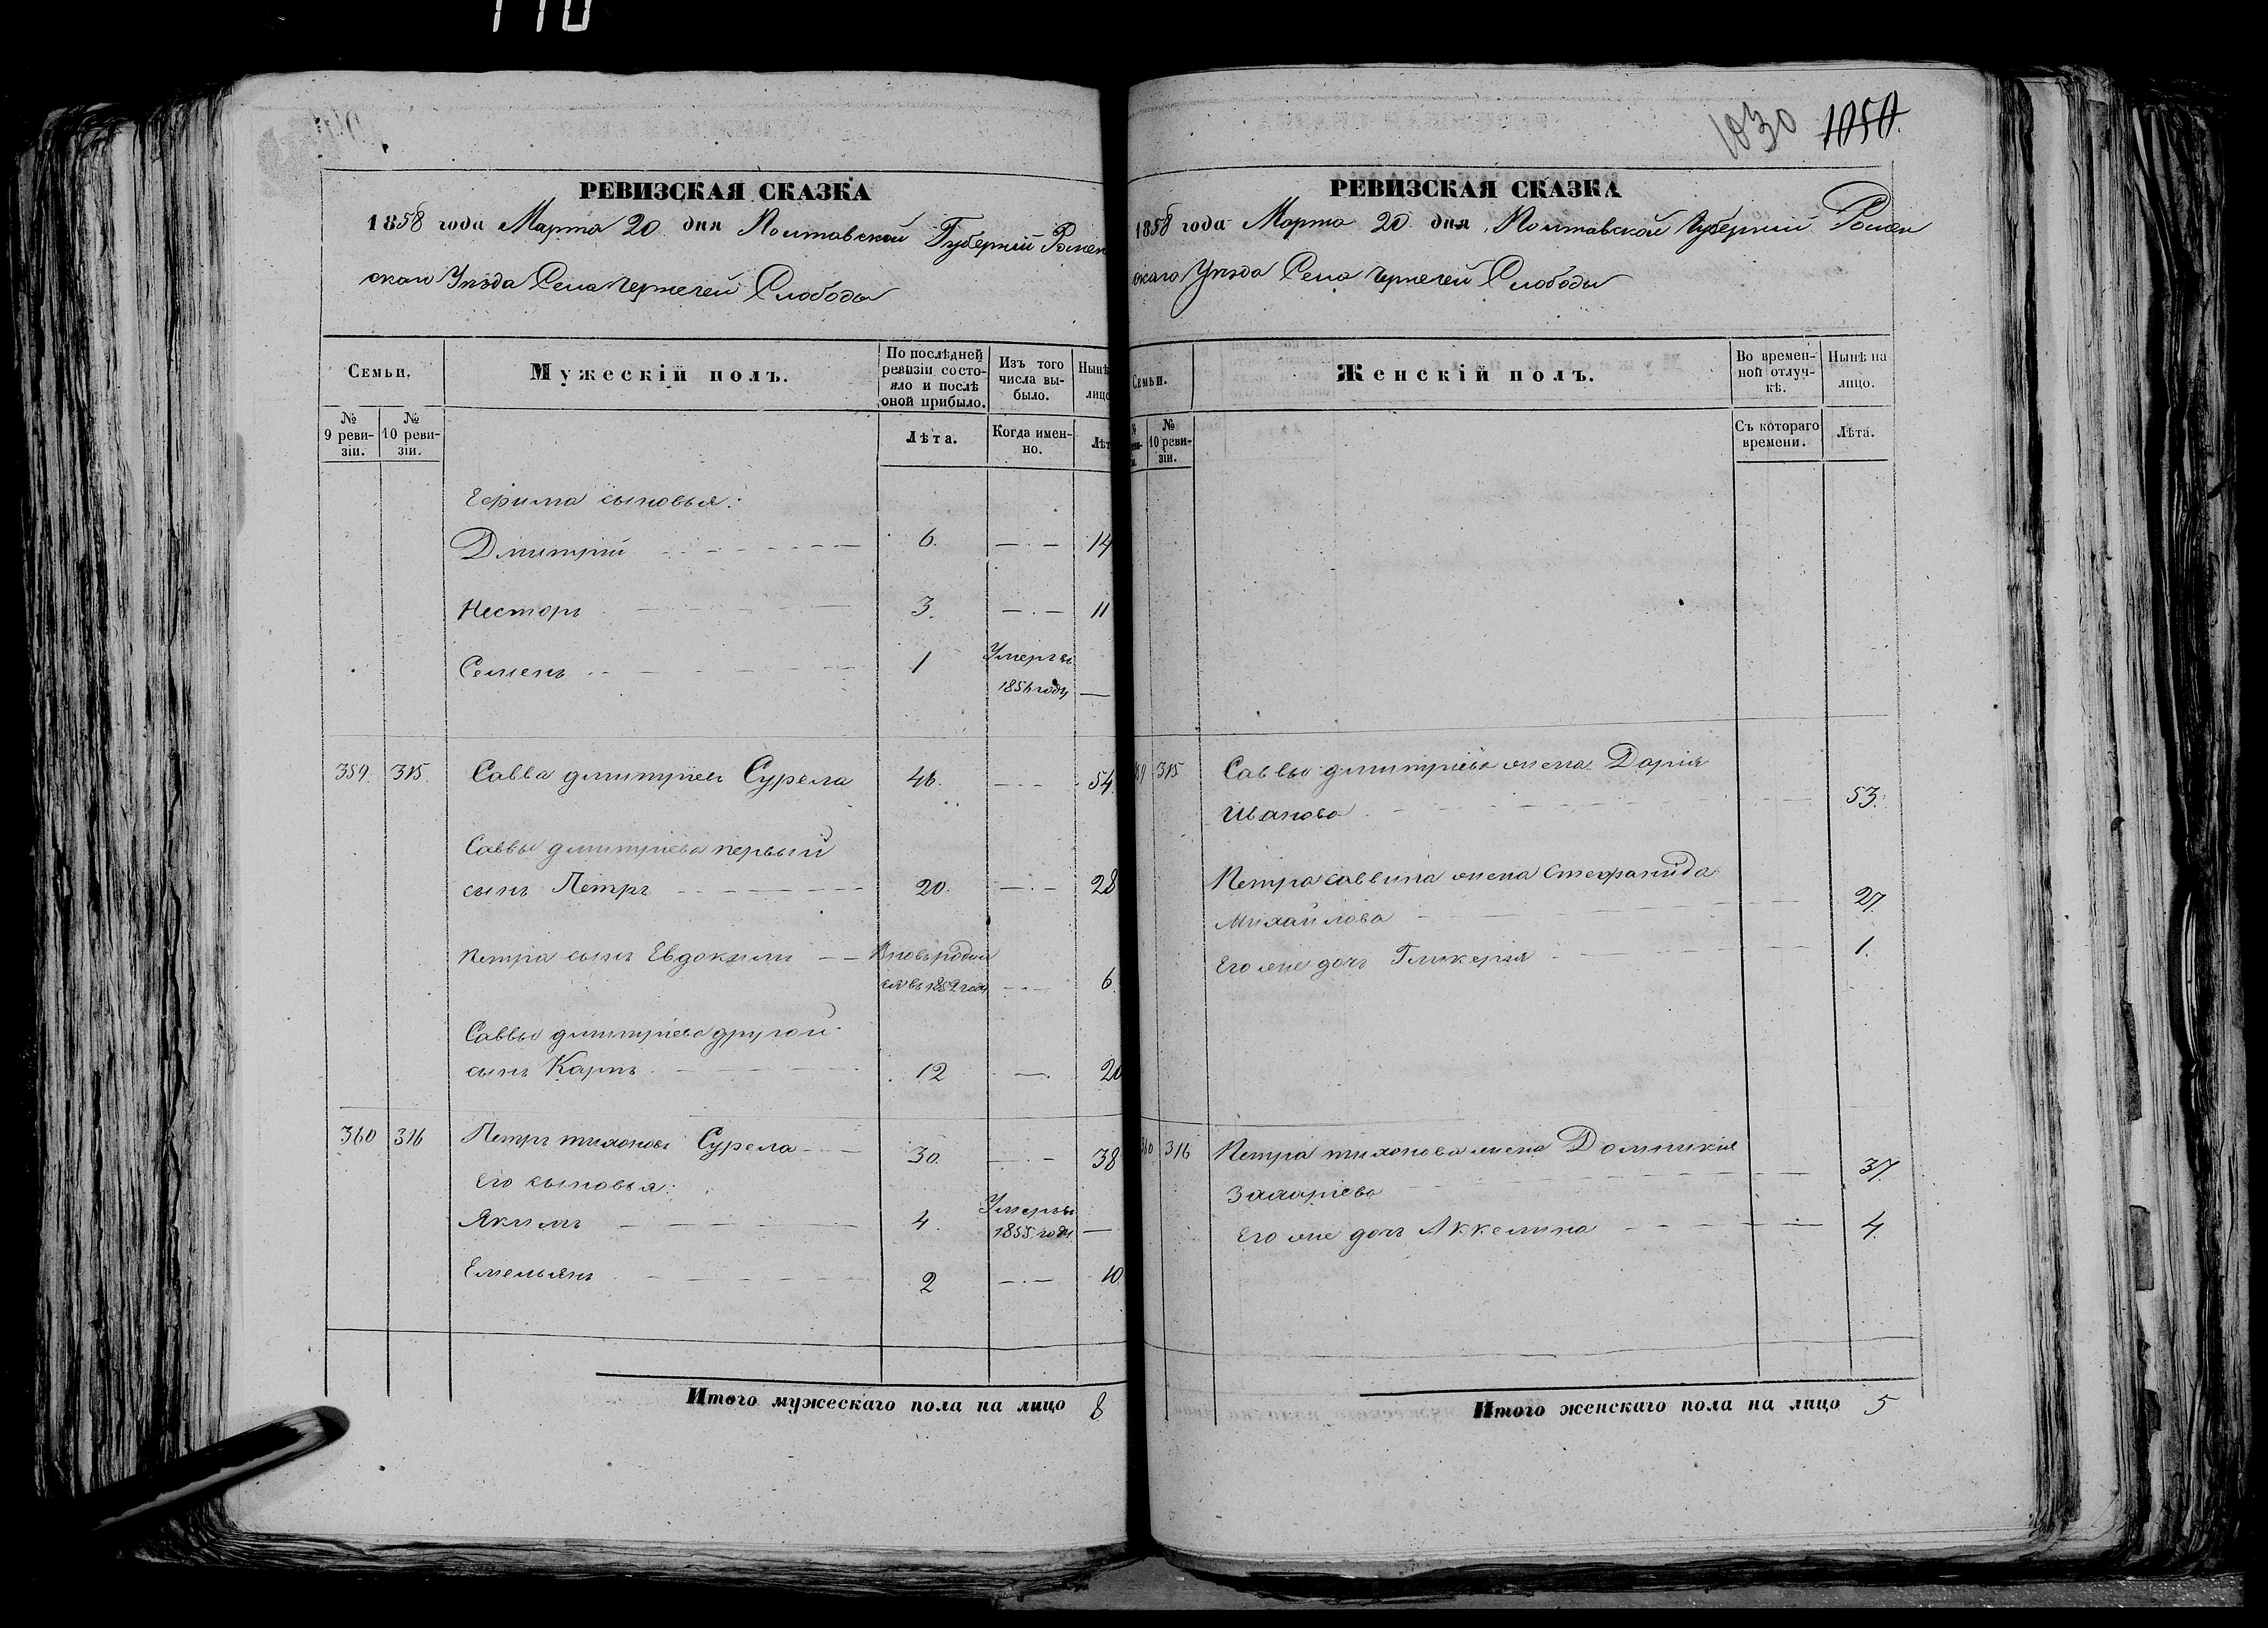 110
РЕВИЗСКАЯ СКАЗКА
1858 года Марта 20 дня Полтавской Губерніи Ромен
скаго Уѣзда Села Чернечей Слободы
Семьи.
Мужескій полъ.
По послѣдней ревизіи состояло и послѣ оной прибыло.
Изъ того числа выбыло.
Нынѣ лицо
№ 9 ревизіи.
№ 10 ревизіи.
Лѣта.
Когда именно.
Лѣт
Ефима сыновья:
Дмитрій 6. — 14
Несторъ 3. — 11
Семенъ 1 Умеръ въ
1856 году —
359. 315. Савва Дмитріевъ Сурела 46. — 54.
Саввы Дмитріева первый
сынъ Петръ 20. — 28
Петра сынъ Евдокимъ Вновь родил
ся въ 1852 году — 6.
Саввы Дмитріева другой
сынъ Карпъ 12 — 20
360 316 Петръ Тихоновъ Сурела 30. — 38
Его сыновья:
Якимъ 4. Умеръ въ
1855 году —
Емельянъ 2 — 10.
Итого мужескаго пола на лицо 8
1030 1050.
РЕВИЗСКАЯ СКАЗКА
1858 года Марта 20 дня Полтавской Губерніи Ромен
скаго Уѣзда Села Чернечей Слободы
Семьи.
Женскій полъ.
Во временной отлучкѣ.
Нынѣ на лицо.
№ 10 ревизіи.
Съ котораго времени.
Лѣта.
59 315 Саввы Дмитріева жена Дарія
Иванова 53.
Петра Саввина жена Стефанида
Михайлова 27.
Его же дочь Гликерія 1.
60 316 Петра Тихонова жена Домникія
Захаріева 37.
Его же дочь Аккелина 4.
Итого женскаго пола на лицо 5